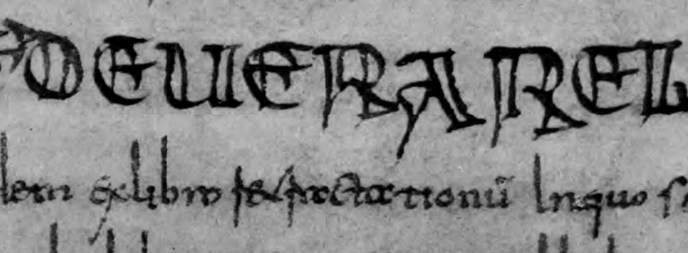 DE UERA REL
dem ex libro retractationū In quo